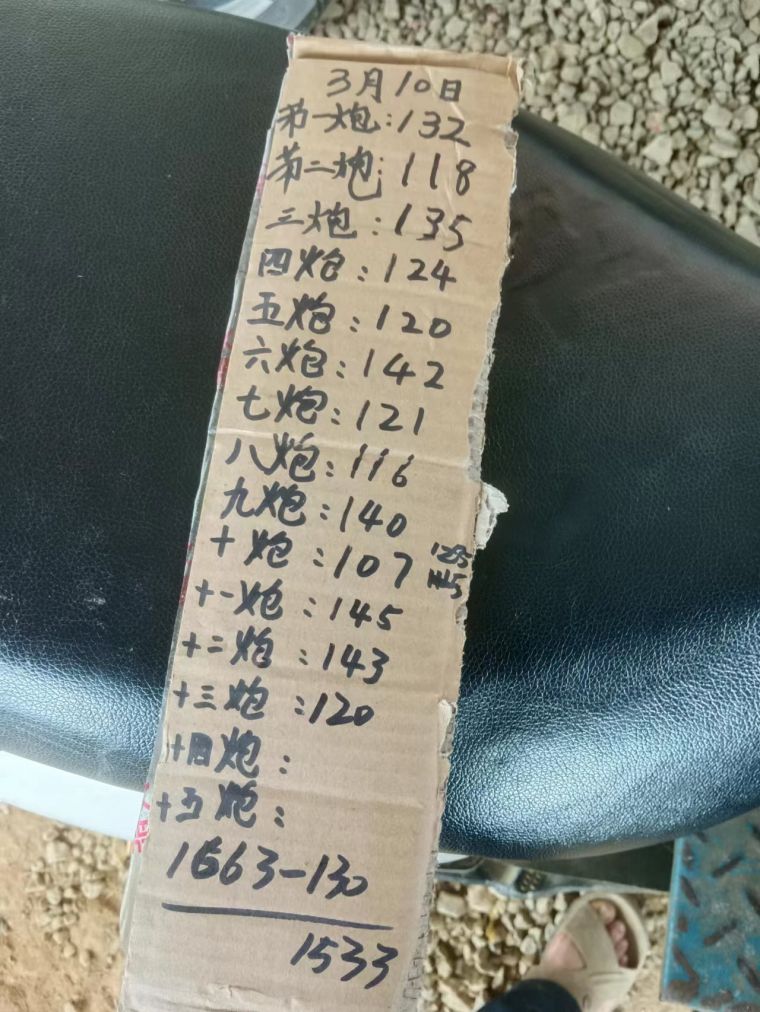 3月10日
第一炮:132
第二炮:118
三炮:135
四炮:124
五炮:120
六炮:142
七炮:121
八炮:116
九炮:140
十炮:107 1255
十一炮:145
十二炮:143
十三炮:120
十四炮:
十五炮:
1663-130
1533